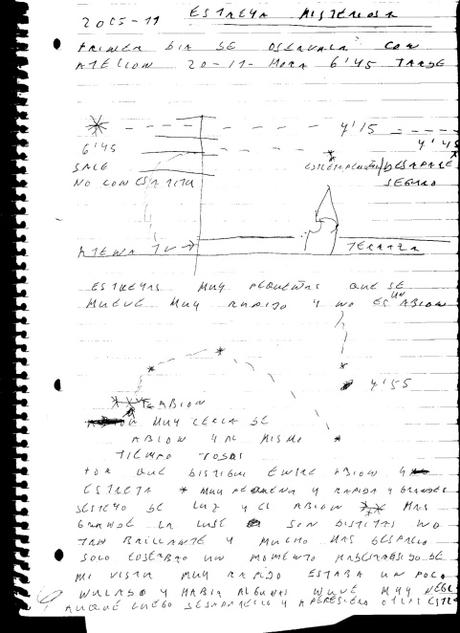 2005-11 ESTREYA MISTERIOSA
PRIMER DIA SE OSERVALA CON
ATECION 20-11- HORA 6'45 TARDE
7'15
7'45
6'45
SALE
NO CON ESTA
DESAPARE
SEGIDO
ATENA TV
TERRAZA
ESTREYAS MUY PEQUEÑAS QUE SE
MUEVE MUY RAPIDO Y NO ES UN ABION
7'55
ABION
MUY CERCA DE
ABION Y AL MISMO
TIEMPO
POR QUE DISTIGUI ENTRE ABION Y
ESTREYA * MUY PEQUEÑA Y RAPIDA Y GRANDES
DESTEYO DE LUZ Y EL ABION MAS
GRANDE LA LUSE SON DISTITAS NO
TAN BRILLANTE Y MUCHO MAS DESPACIO
SOLO UN MOMENTO
MI VISTA MUY RAPIDO ESTABA UN POCO
NULADO Y HABIA ALGUNAS NUVE MUY NEGR
AUQUE LUEGO DESAPARECIO Y APERESIERO OTRAS ESTRE